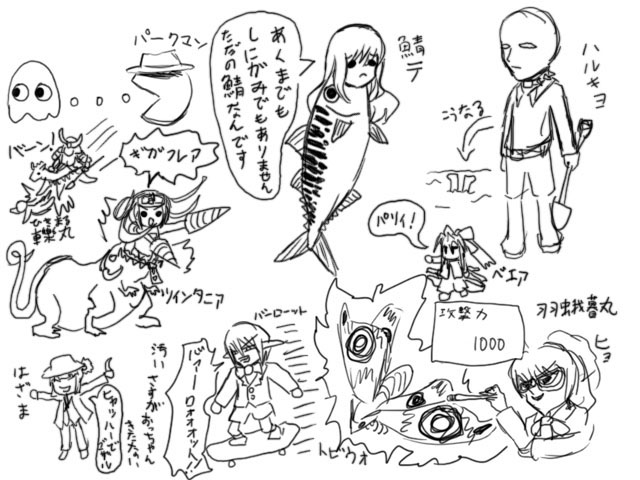 パークマン
あくまでも
しにがみでもありません
ただの鯖なんです
鯖テ
ハルキヨ
こうなる
バーン!
ぎがフレア
ひきまる
轢丸
ツインタニア
パリィ!
ベエア
攻撃力
1000
羽蛾暮丸
ヒョ
はざま
ヒャッハーで
ござル
汚いさすがおっちゃん
きたない
バンロット
バァーロォオオット!!
トビウオ